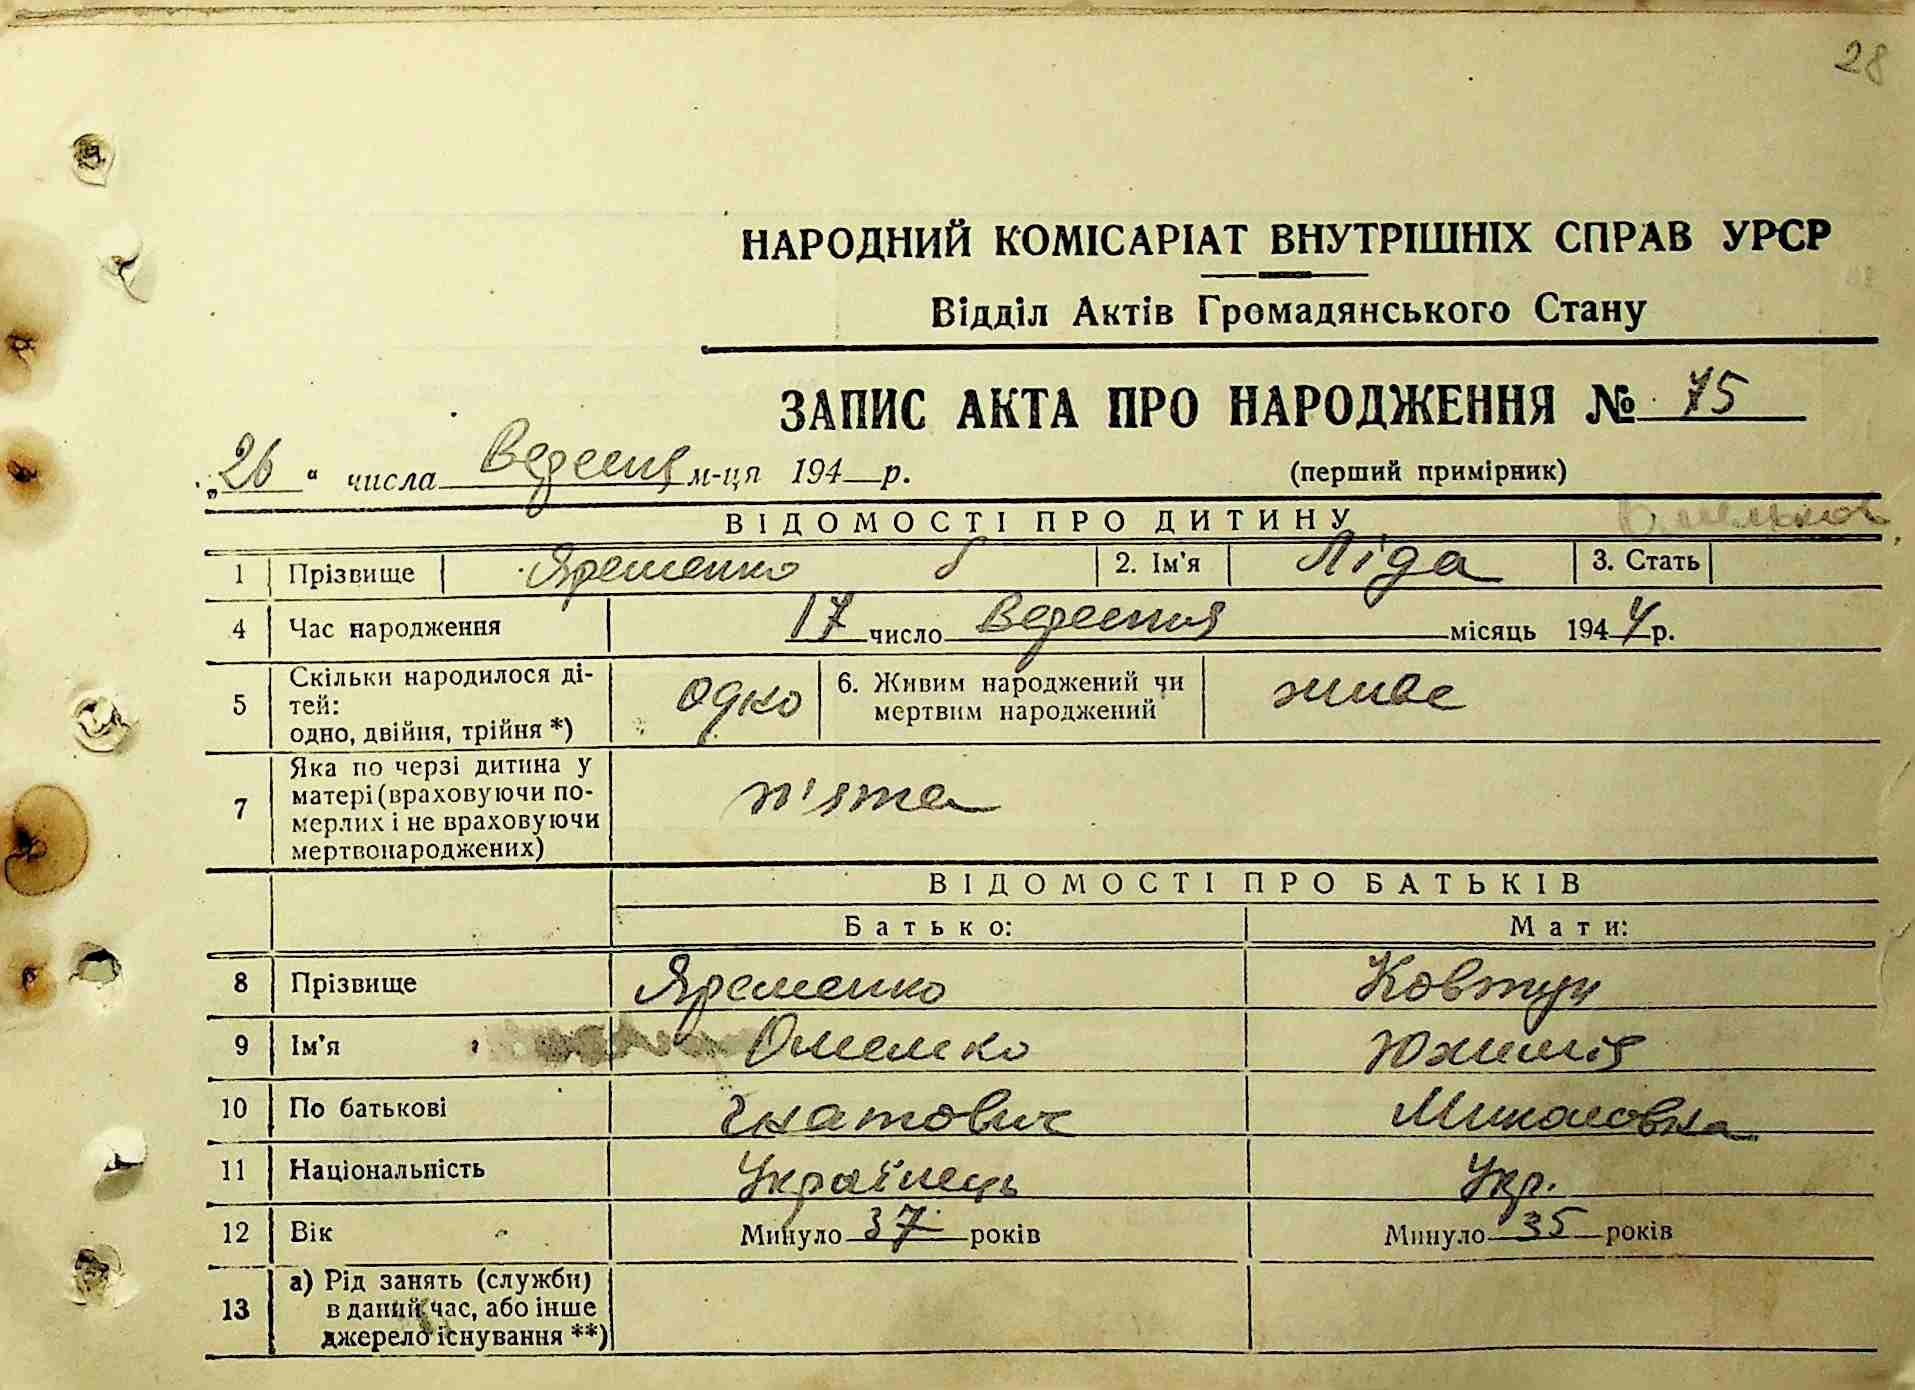 28
НАРОДНИЙ КОМІСАРІАТ ВНУТРІШНІХ СПРАВ УРСР
Відділ Актів Громадянського Стану
ЗАПИС АКТА ПРО НАРОДЖЕННЯ № 75
„26" числа Вересня м-ця 194 р. (перший примірник)
ВІДОМОСТІ ПРО ДИТИНУ
1 Прізвище Яременко 2. Ім'я Ліда 3. Стать
4 Час народження 17 число Вересня місяць 1944 р.
5 Скільки народилося ді-
тей:
одно, двійня, трійня *) одно 6. Живим народжений чи
мертвим народжений живе
7 Яка по черзі дитина у
матері (враховуючи по-
мерлих і не враховуючи
мертвонароджених) п'ята
ВІДОМОСТІ ПРО БАТЬКІВ
Батько: Мати:
8 Прізвище Яременко Ковтун
9 Ім'я Омелко Юхимія
10 По батькові Гнатович Миколовна
11 Національність Українець Укр.
12 Вік Минуло 37 років Минуло 35 років
13 а) Рід занять (служби)
в даний час, або інше
джерело існування **)